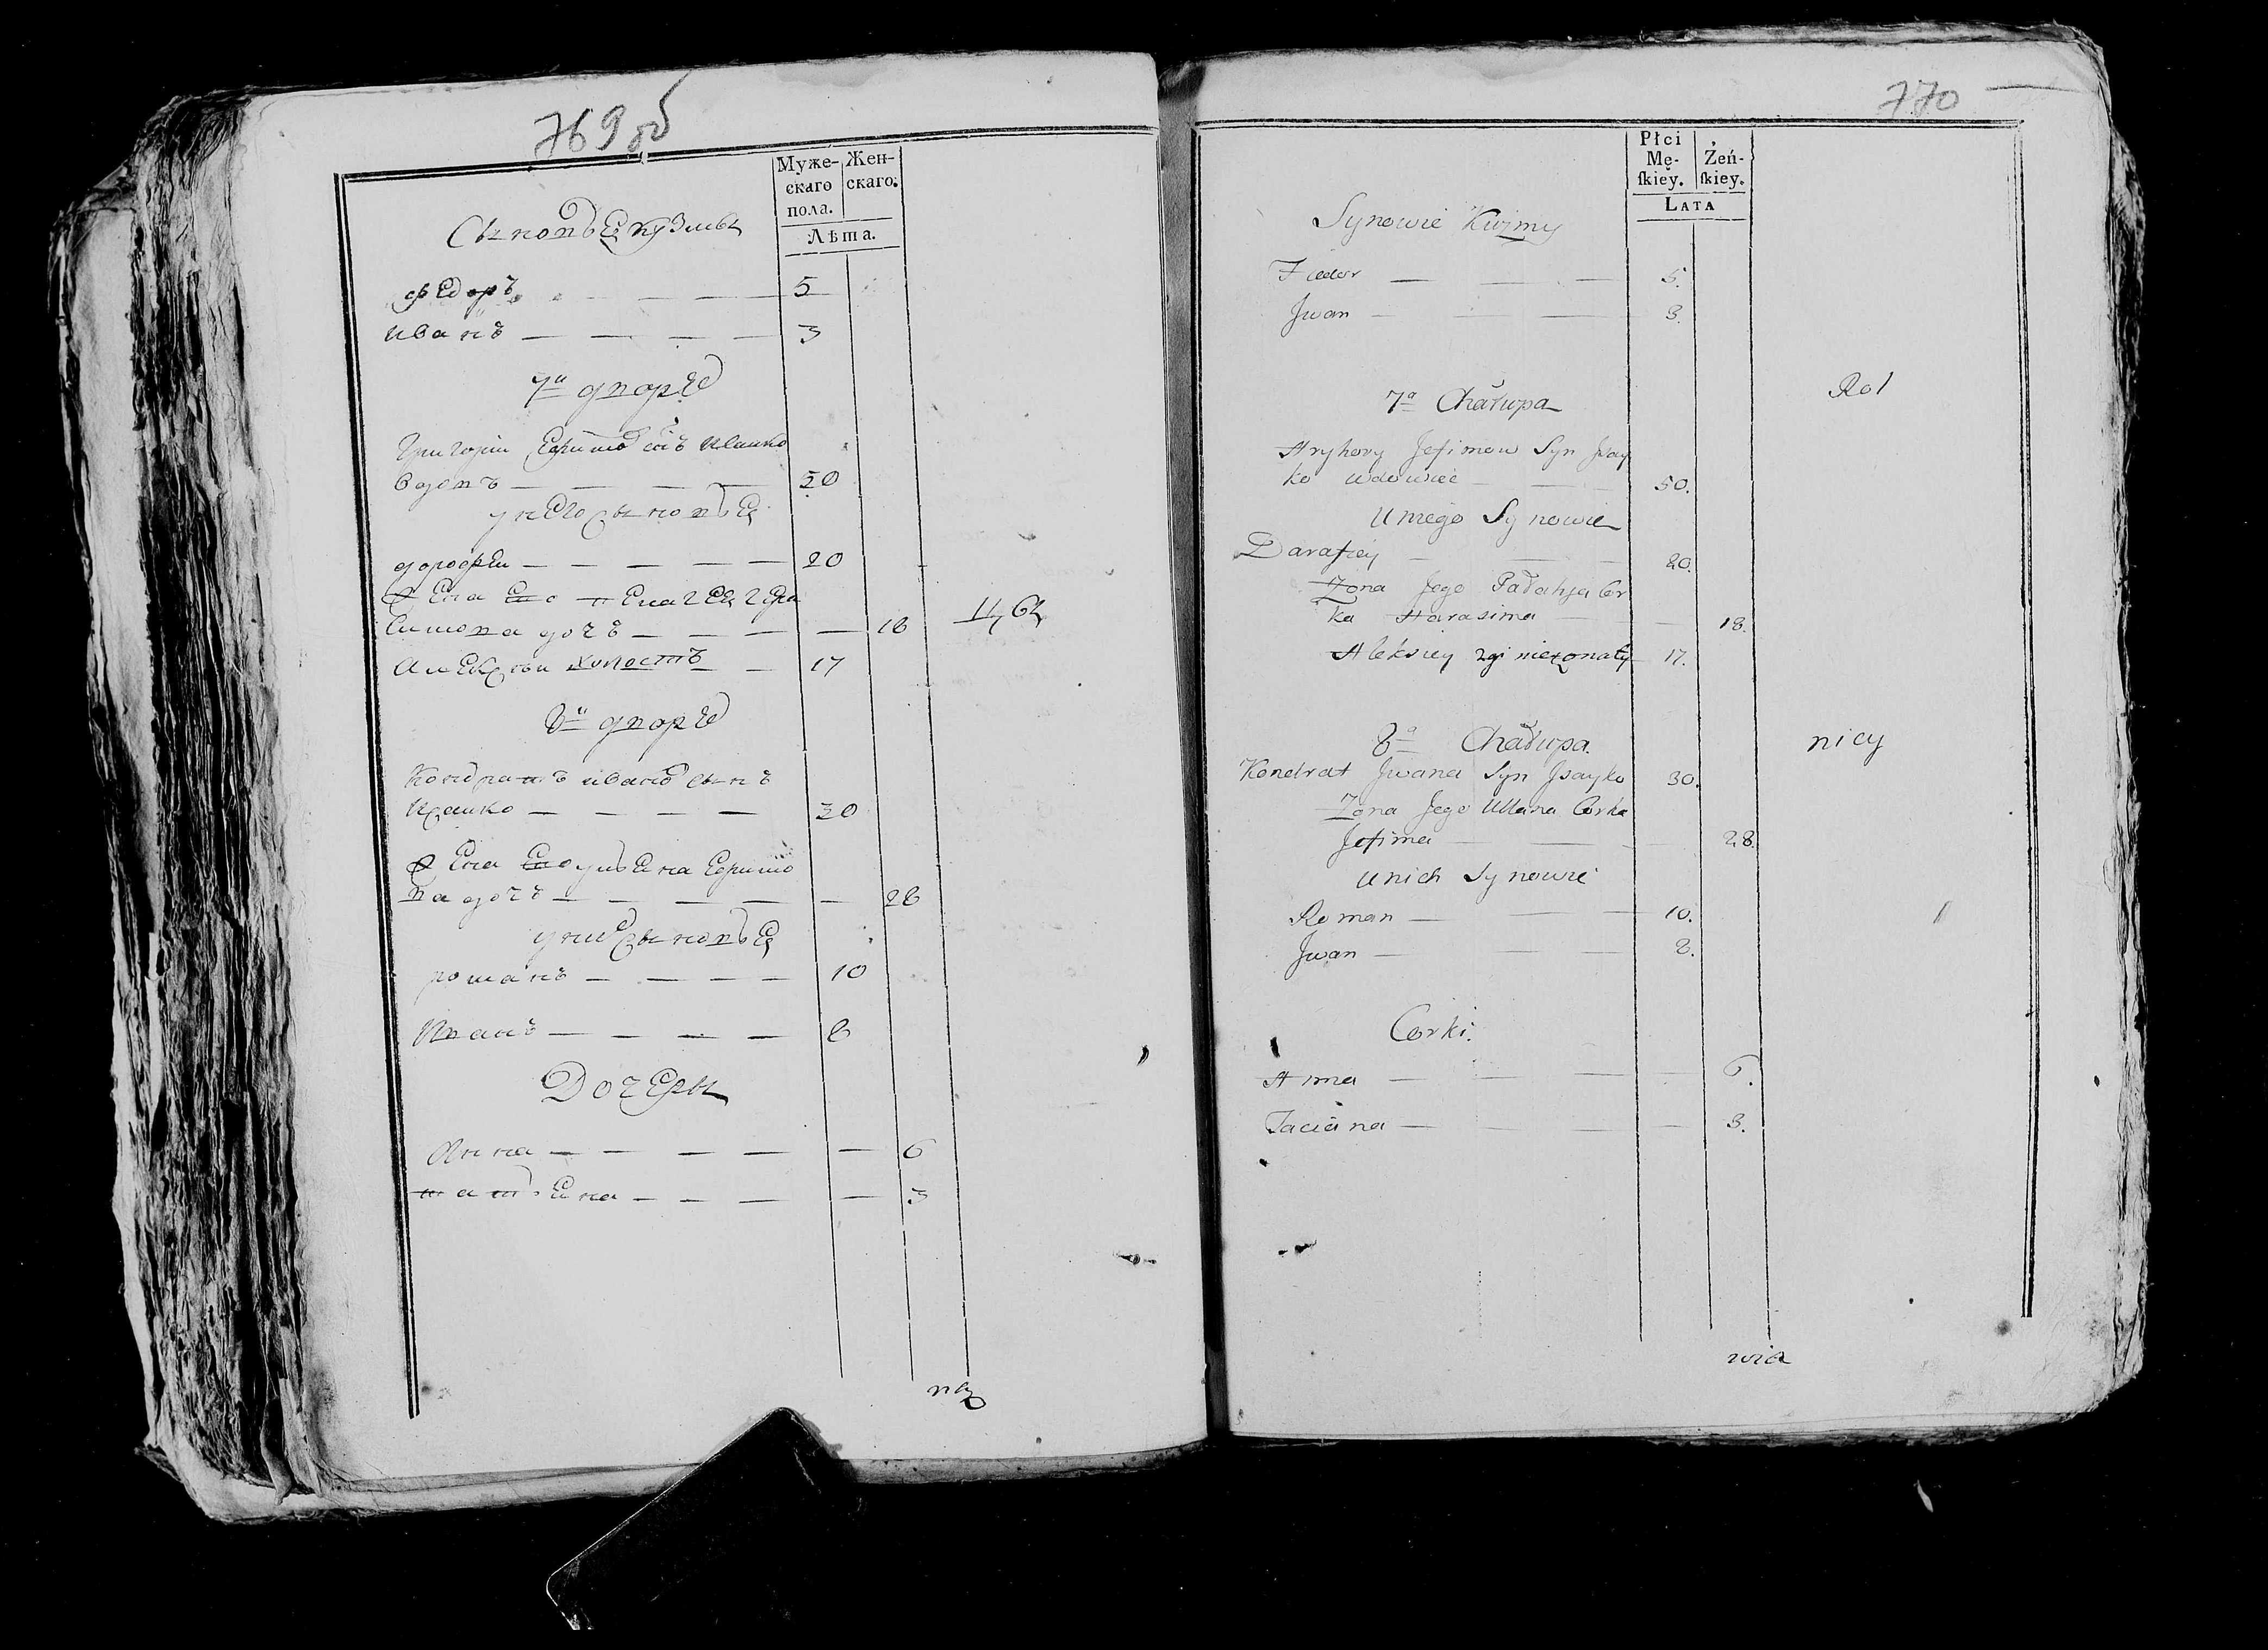 769об
Муже-
скаго
пола.
Жен-
скаго.
Лѣта.
Сыновье кузмы
федоръ — — — — 5
иванъ — — — — 3
7й дворъ
Григорій Ефимовъ сынъ Исайко
вдовъ — — — — 50
у него сыновье
дорофеи — — — — — 20
Жена Его
дочъ — — — 18
Алексѣи холостъ — 17
8й дворъ
Кондратъ ивановъ сынъ
Исайко — — — — 30
Жена Его ульена Ефимо
ва дочъ — — — — — 28
у них сыновье
романъ — — — — 10
Иванъ — — — — 8
Дочеры
Анна — — — — — 6
татьена — — — — 3
770
Płci
Mę-
ſkiey.
Żeń-
ſkiey.
LATA
Synowie Kuzmy
Fiedor — — — 5.
Jwan — — — 3.
7a Chałupa
Rol
Hryhory Jefimow Syn Jsay
ko wdowiec — — 50.
U niego Synowie
Darafiey — — 20.
Zona Jego Pałahja Cor
ka Harasima — — 18.
Aleksiey niezonaty 17.
8a Chałupa.
nicy
Kondrat Jwana Syn Jsayko 30.
Zona Jego Ullana Corka
Jefima — — — 28.
U nich Synowie
Roman — — — 10.
Jwan — — — 8.
Corki.
Anna — — — — 6.
Taciana — — — — 3.